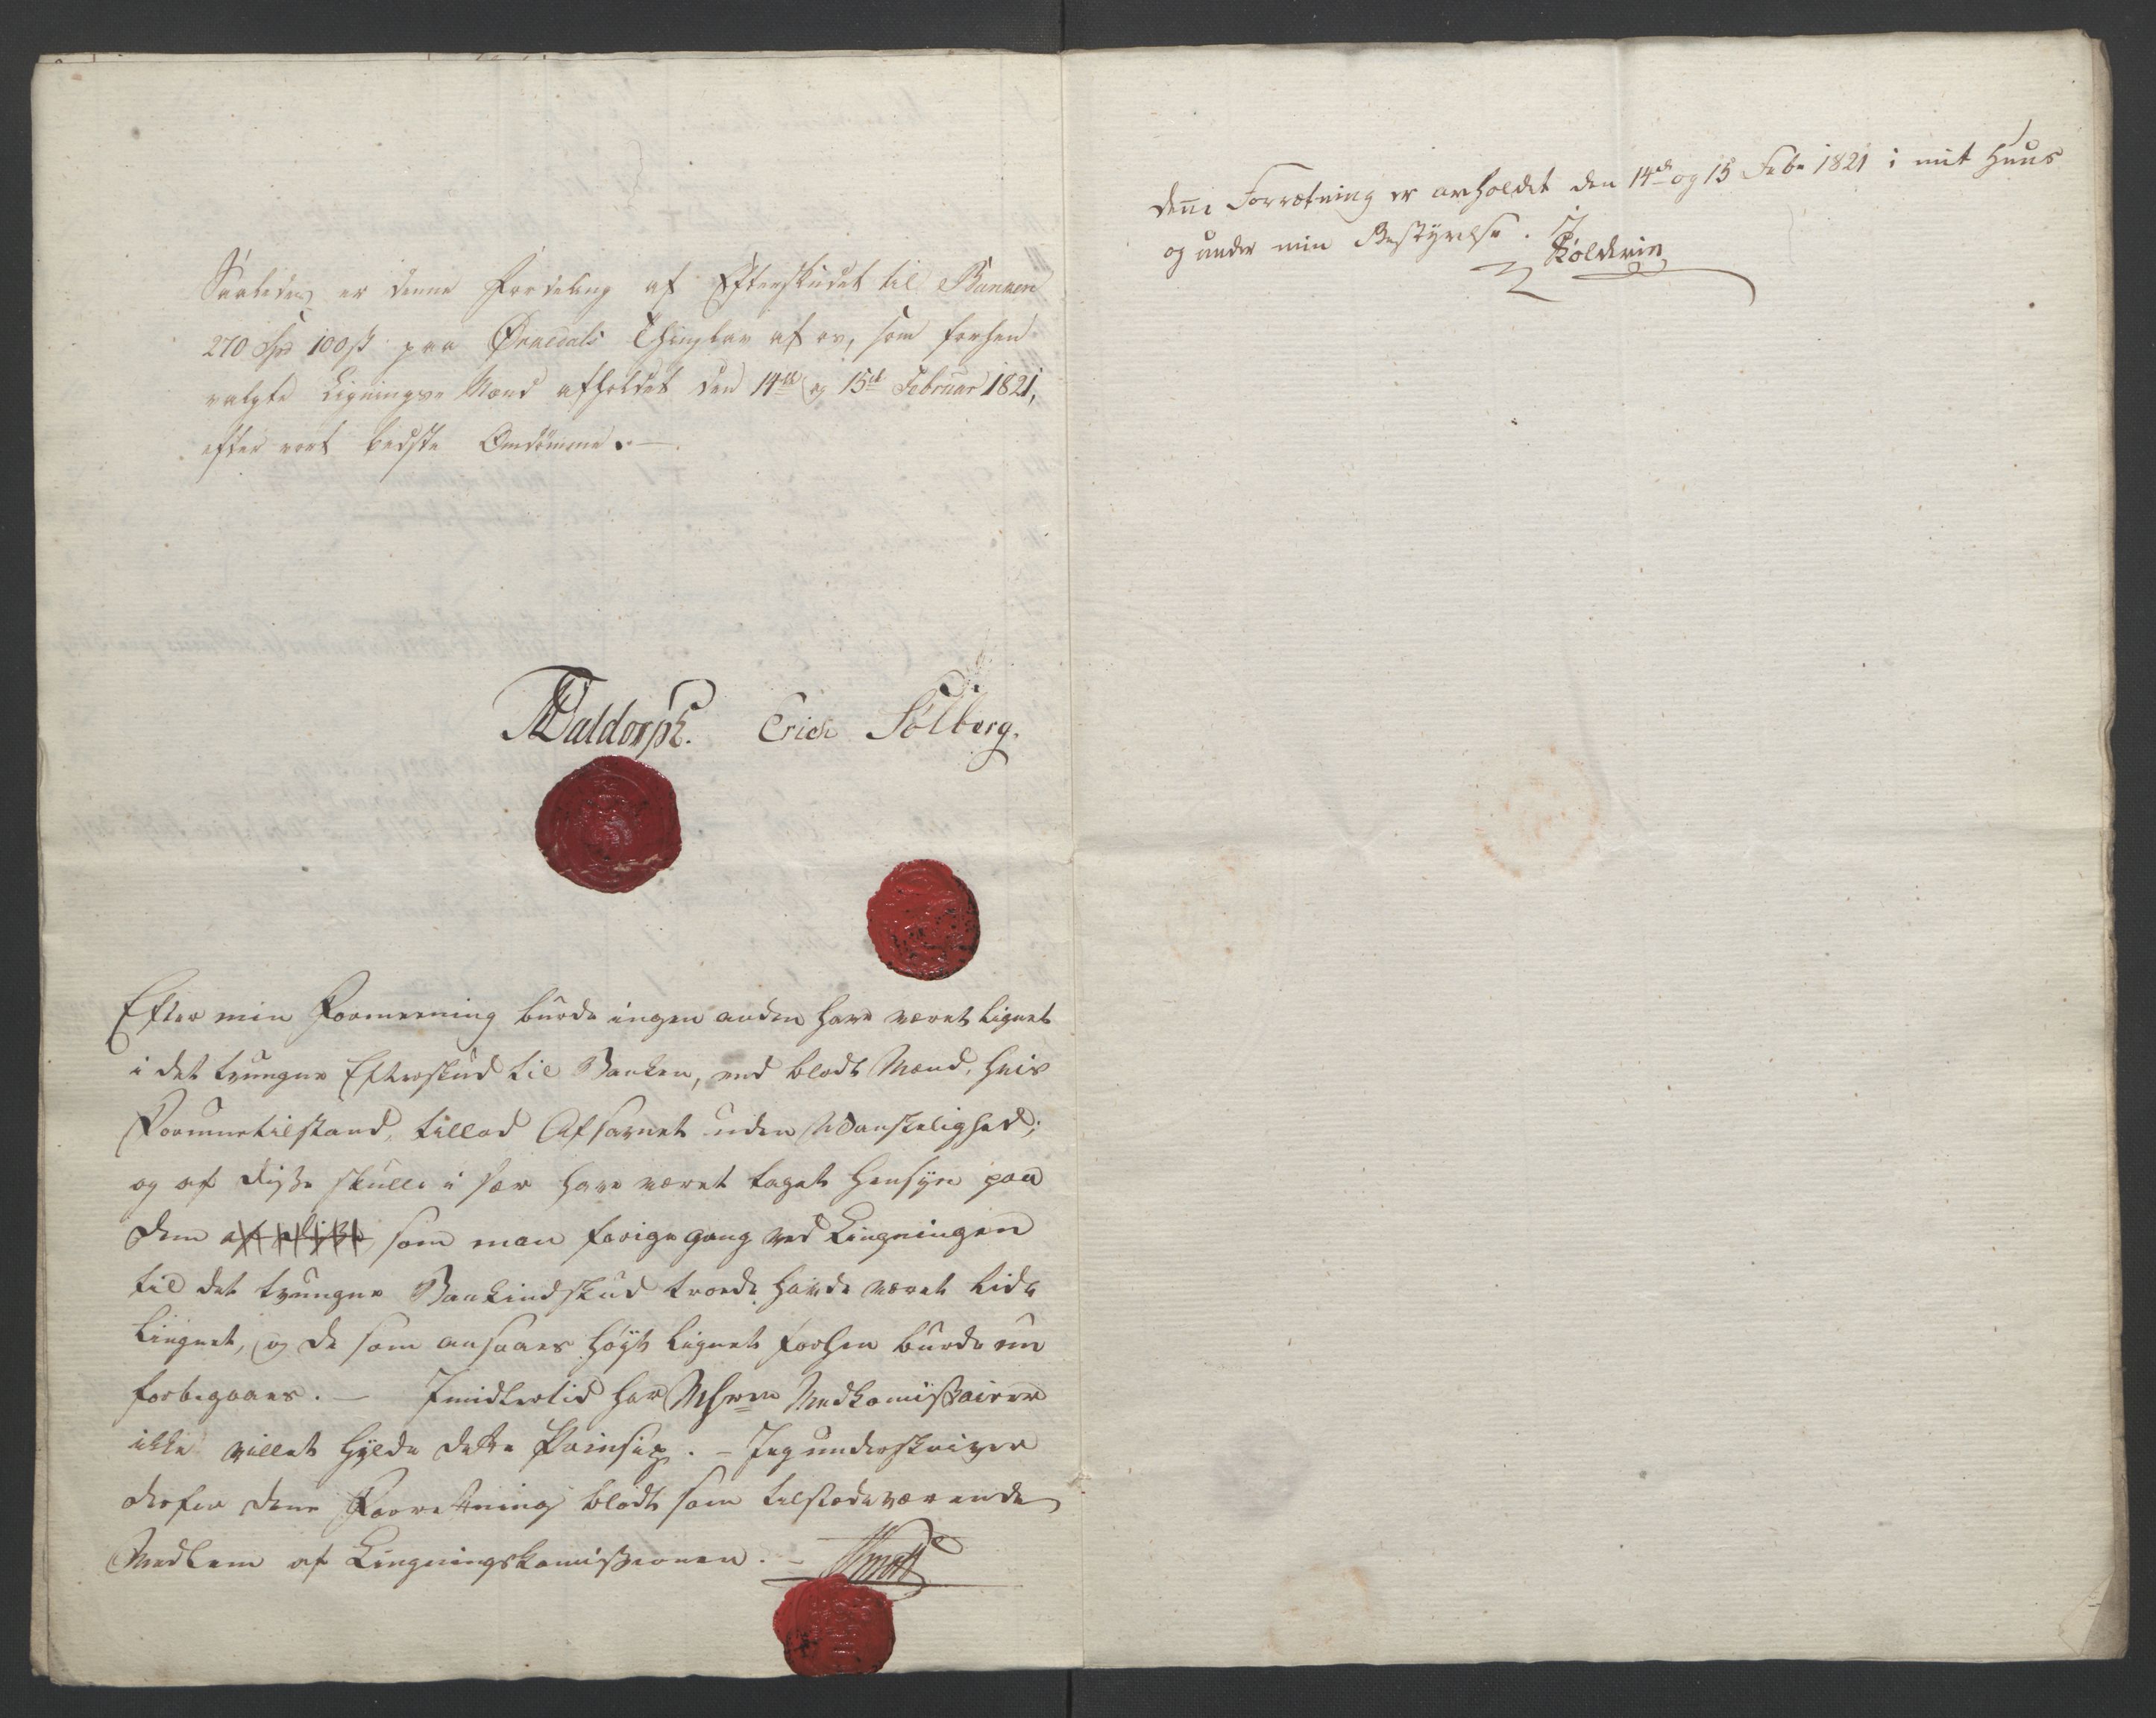 Saaledes er denne Fordeling af Efterskudet til Banken
270 Spd 100 ß paa Ørkedals Thinglav af os, som forhen
valgte Ligningsmænd afholdet den 14de og 15de Februar 1821,
efter vort bedste Omdömme. —
Waldorph. Erich Solberg.
Efter min Formeening burde ingen anden have været lignet
i det tvungne Efterskud til Banken, end blodt Mænd, hvis
Formuetilstand, tillod Afsavnet uden Vanskelighed;
og af disse skulle i sær have været taget Hensyn paa
dem som man forige gang ved Lingningen
til det tvungne Bankindskud troede havde været lidt
lingnet, og de som ansaaes høyt lignet forhen burde nu
forbigaaes. — Imidlertid har Medkomissairer
ikke villet hylde dette Prinsip. — Jeg underskriver
derfor denne Forretning blodt som tilstædeværende
Medlem af Lingningskomissionen. —
denne Forretning er avholdet den 14de og 15 Febr 1821 i mit Huus
og under min Bestyrelse.